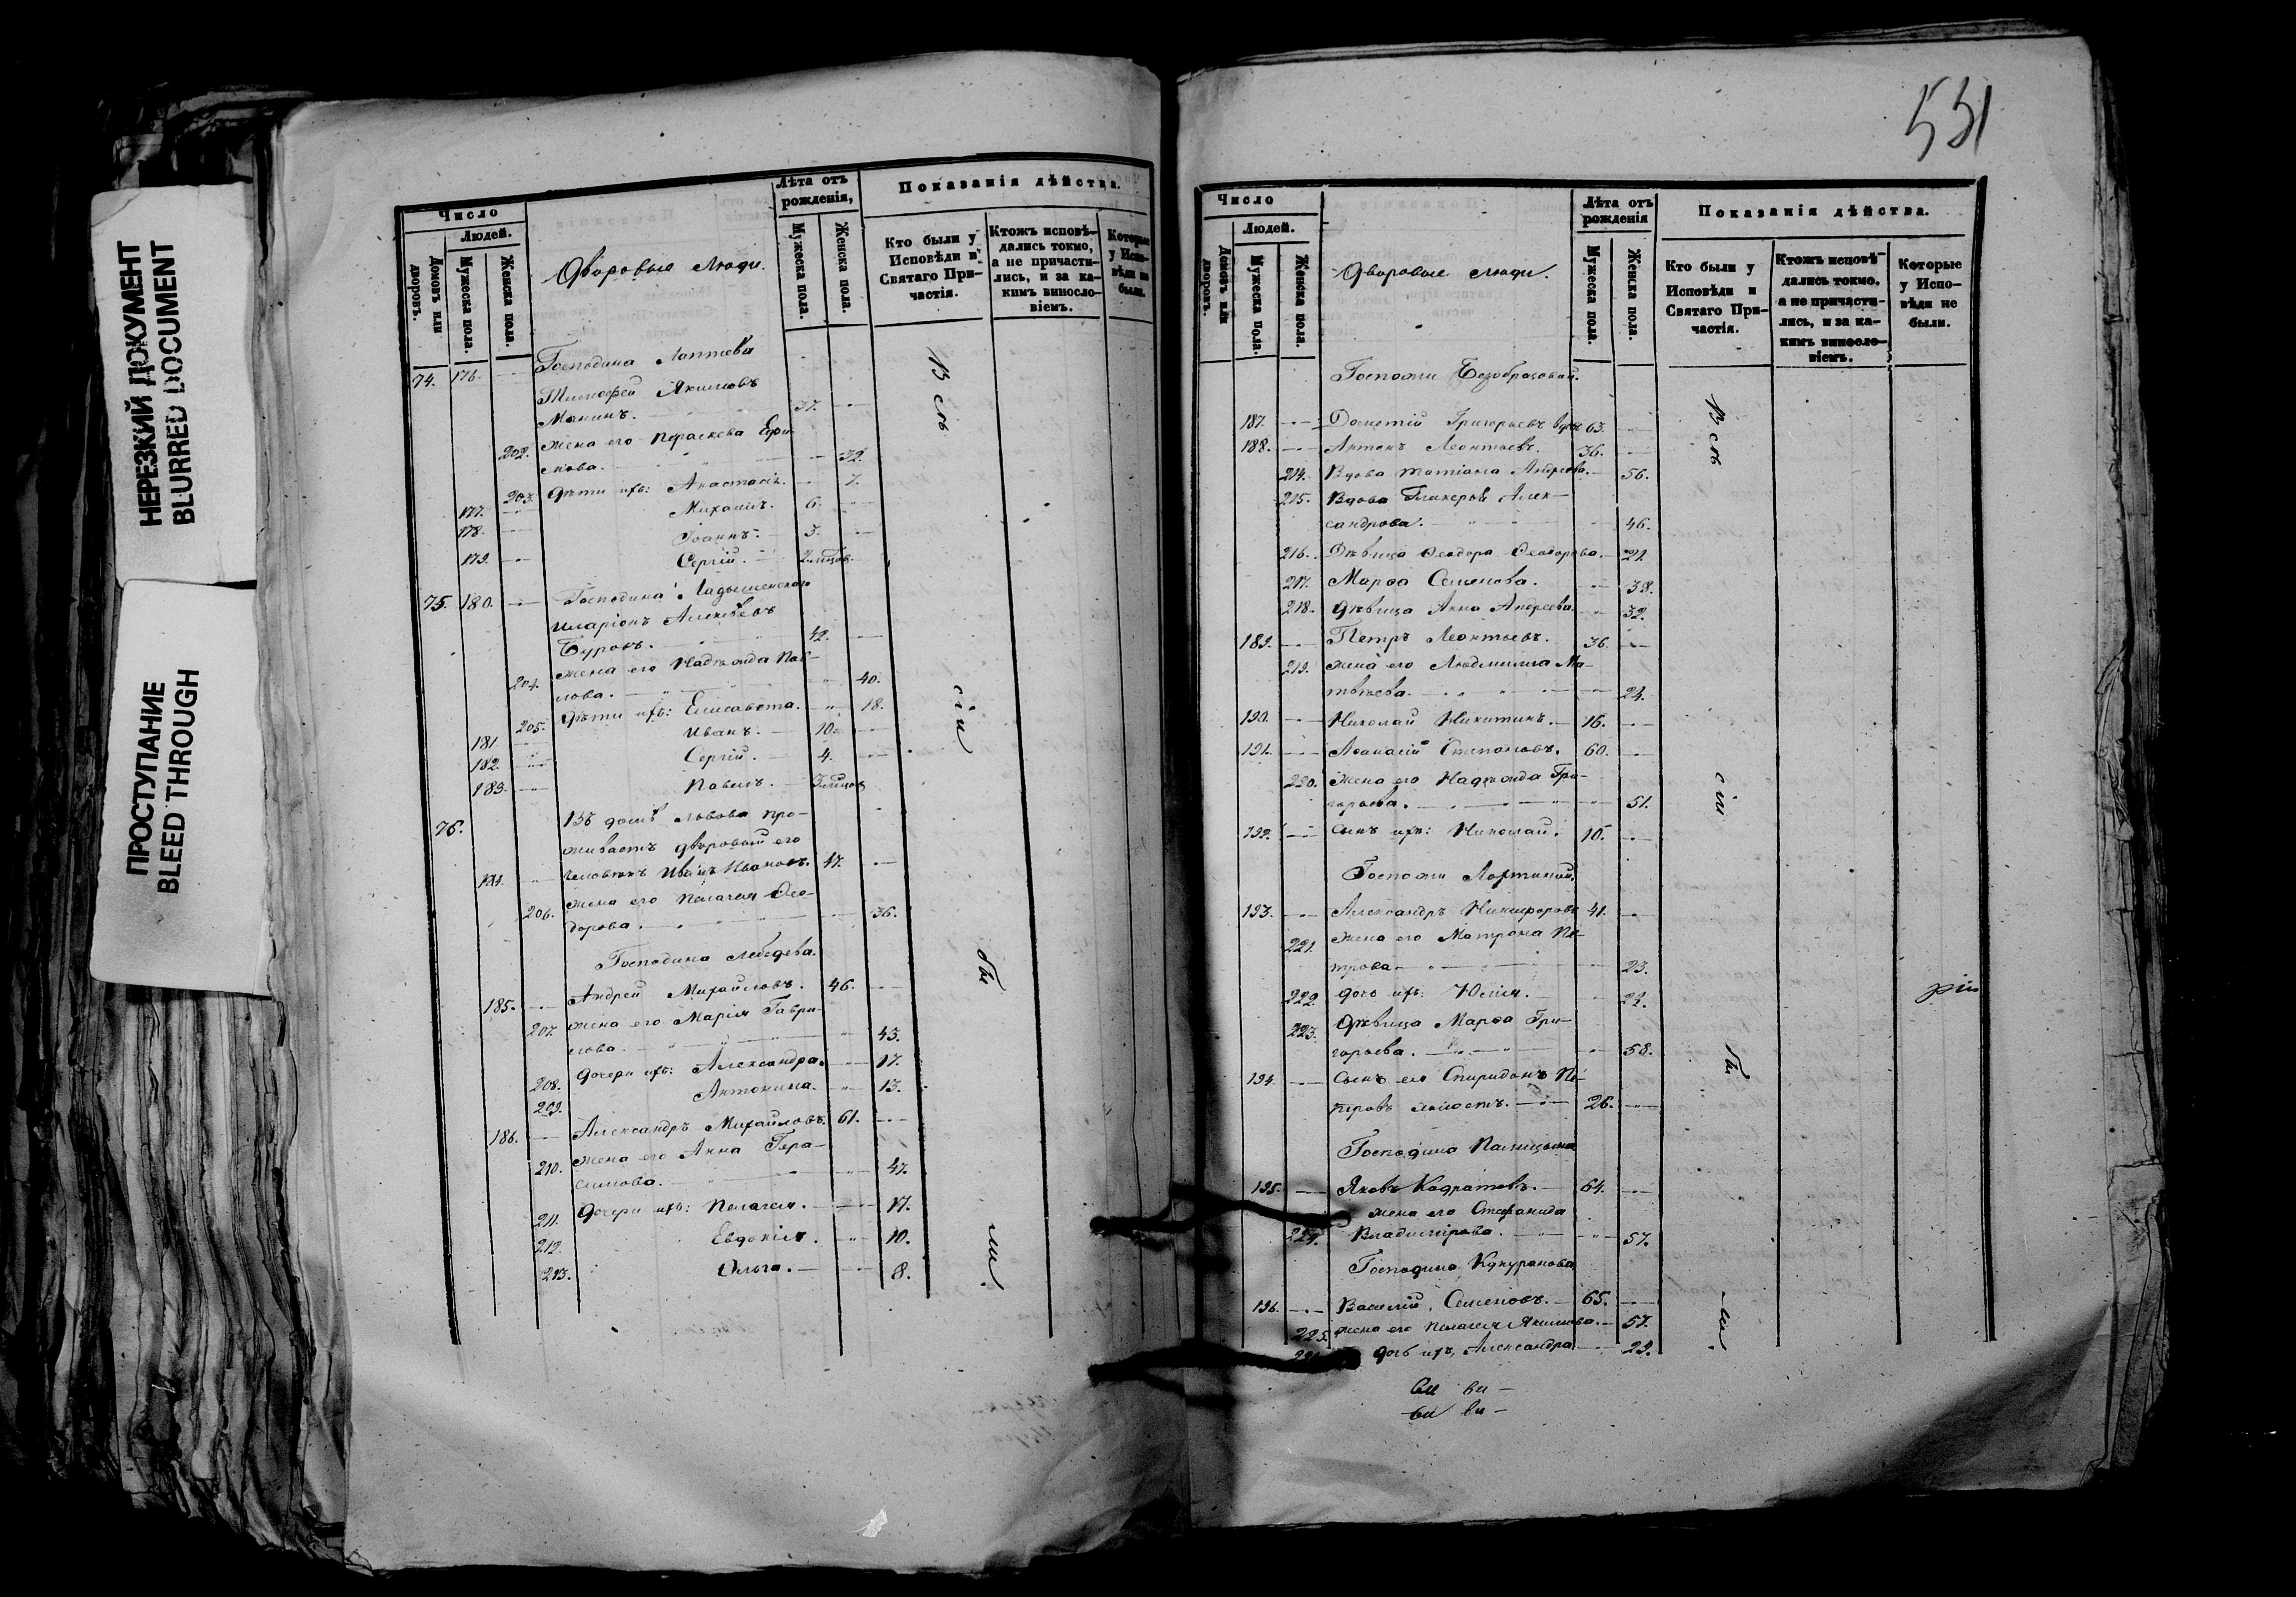 НЕРЕЗКИЙ ДОКУМЕНТ
BLURRED DOCUMENT
ПРОСТУПАНИЕ
BLEED THROUGH
Число
Людей.
Домовъ или дворовъ.
Мужеска пола.
Женска пола.
Дворовые люди.
Лѣта отъ рожденія,
Мужеска пола.
Женска пола.
Показанія дѣйства.
Кто были у Исповѣди и Святаго При-
частія.
Ктожъ исповѣ-
дались токмо,
а не причасти-
лись, и за ка-
кимъ винносло-
віемъ.
Которые у Испо-
вѣди не были.
74. 176. Господина Лаптева
Тимофей Якимовъ
Манинъ. 37.
202. Жена его Параскева Ефи-
мова. 32.
203. Дѣти ихъ: Анастасія. 7.
177. Михаилъ. 6.
178. Іоаннъ. 3.
179. Сергій. 2 мѣсц.
75. 180. Господина Ладыженскаго
Иларіонъ Алексѣевъ
Буровъ. 42.
204. Жена его Надежда Пав-
лова. 40.
205. Дѣти ихъ: Елисавета. 18.
181. Иванъ. 10.
182. Сергій. 4.
183. Павелъ.
76. Въ домѣ Львова про-
живаетъ дворовый его
184. человѣкъ Иванъ Ивановъ. 47.
206. Жена его Пелагея Ѳео-
дорова. 36.
Господина Лебедева.
185. Андрей Михайловъ. 46.
207. Жена его Марія Гаври-
лова. 43.
208. Дочери ихъ: Александра. 17.
209. Антонина. 13.
186. Александръ Михайловъ. 61.
210. Жена его Анна Гера-
симова. 47.
211. Дочери ихъ: Пелагея. 17.
212. Евдокія. 10.
213. Ольга. 8.
Всѣ
сіи
бы
ли.
531
Число
Людей.
Домовъ или дворовъ.
Мужеска пола.
Женска пола.
Дворовые люди.
Лѣта отъ рожденія
Мужеска пола.
Женска пола.
Показанія дѣйства.
Кто были у Исповѣди и Святаго При-
частія.
Ктожъ исповѣ-
дались токмо,
а не причасти-
лись, и за ка-
кимъ винносло-
віемъ.
Которые у Испо-
вѣди не были.
Госпожи Безобразовой.
187. Дометій Григорьевъ вдов 63.
188. Антонъ Леонтьевъ. 36.
214. Вдова Татіана Андреева. 56.
215. Вдова Гликерія Алек-
сандрова. 46.
216. Дѣвица Ѳеодора Ѳеодорова. 21.
217. Марѳа Семенова. 38.
218. Дѣвица Анна Андреева. 32.
189. Петръ Леонтьевъ. 36.
219. Жена его Людмила Ма-
твѣева. 24.
190. Николай Никитинъ. 16.
191. Аѳанасій Степановъ. 60.
220. Жена его Надежда Гри-
горьева. 51.
192. Сынъ ихъ: Николай. 10.
193. Александръ Никифоровъ 41.
221. Жена его Матрона Пе-
трова 23.
222. Дочь ихъ: Юлія.
223. Дѣвица Марѳа Гри-
горьева. 58.
194. Сынъ его Спиридонъ Пе-
тровъ холостъ. 26.
Господина Палицына
195. Яковъ Кодратовъ. 64.
Жена его Стефанида
224. Владимірова. 57.
196. Василій Семеновъ. 65.
225. Жена его Пелагея Якимова. 57.
Дочь ихъ, Александра 29.
Всѣ
сіи
бы
ли.